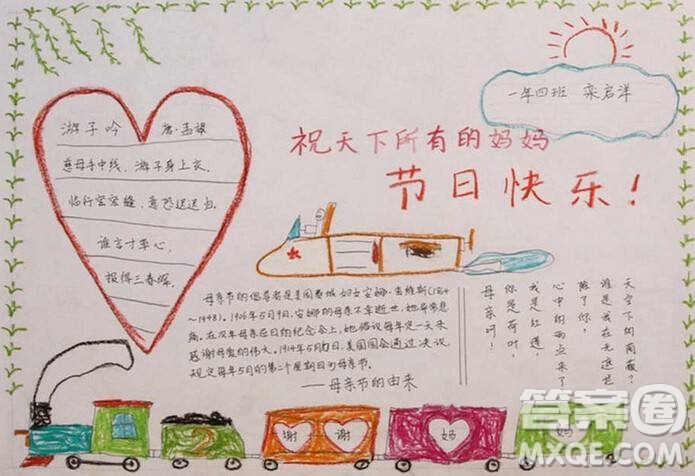 一年四班 栾启洋
祝天下所有的妈妈
节日快乐！
游子吟 唐·孟郊
慈母手中线，游子身上衣。
临行密密缝，意恐迟迟归。
谁言寸草心，
报得三春晖。
母亲节的倡导者是美国费城妇女安娜·查维斯(1864
~1948)。1906年5月9日，安娜的母亲不幸逝世，她异常悲
痛。在次年母亲忌日的纪念会上，她倡议每年定一天来
感谢母爱的伟大。1914年5月日，美国国会通过决议
规定每年5月的第二个星期日为母亲节。
——母亲节的由来
天空下的雨蔽？
谁是我在无遮
除了你，
心中的雨点来了
我是红莲，
你是荷叶，
母亲啊！
谢
谢
妈
妈
答案圈
MXQE.COM